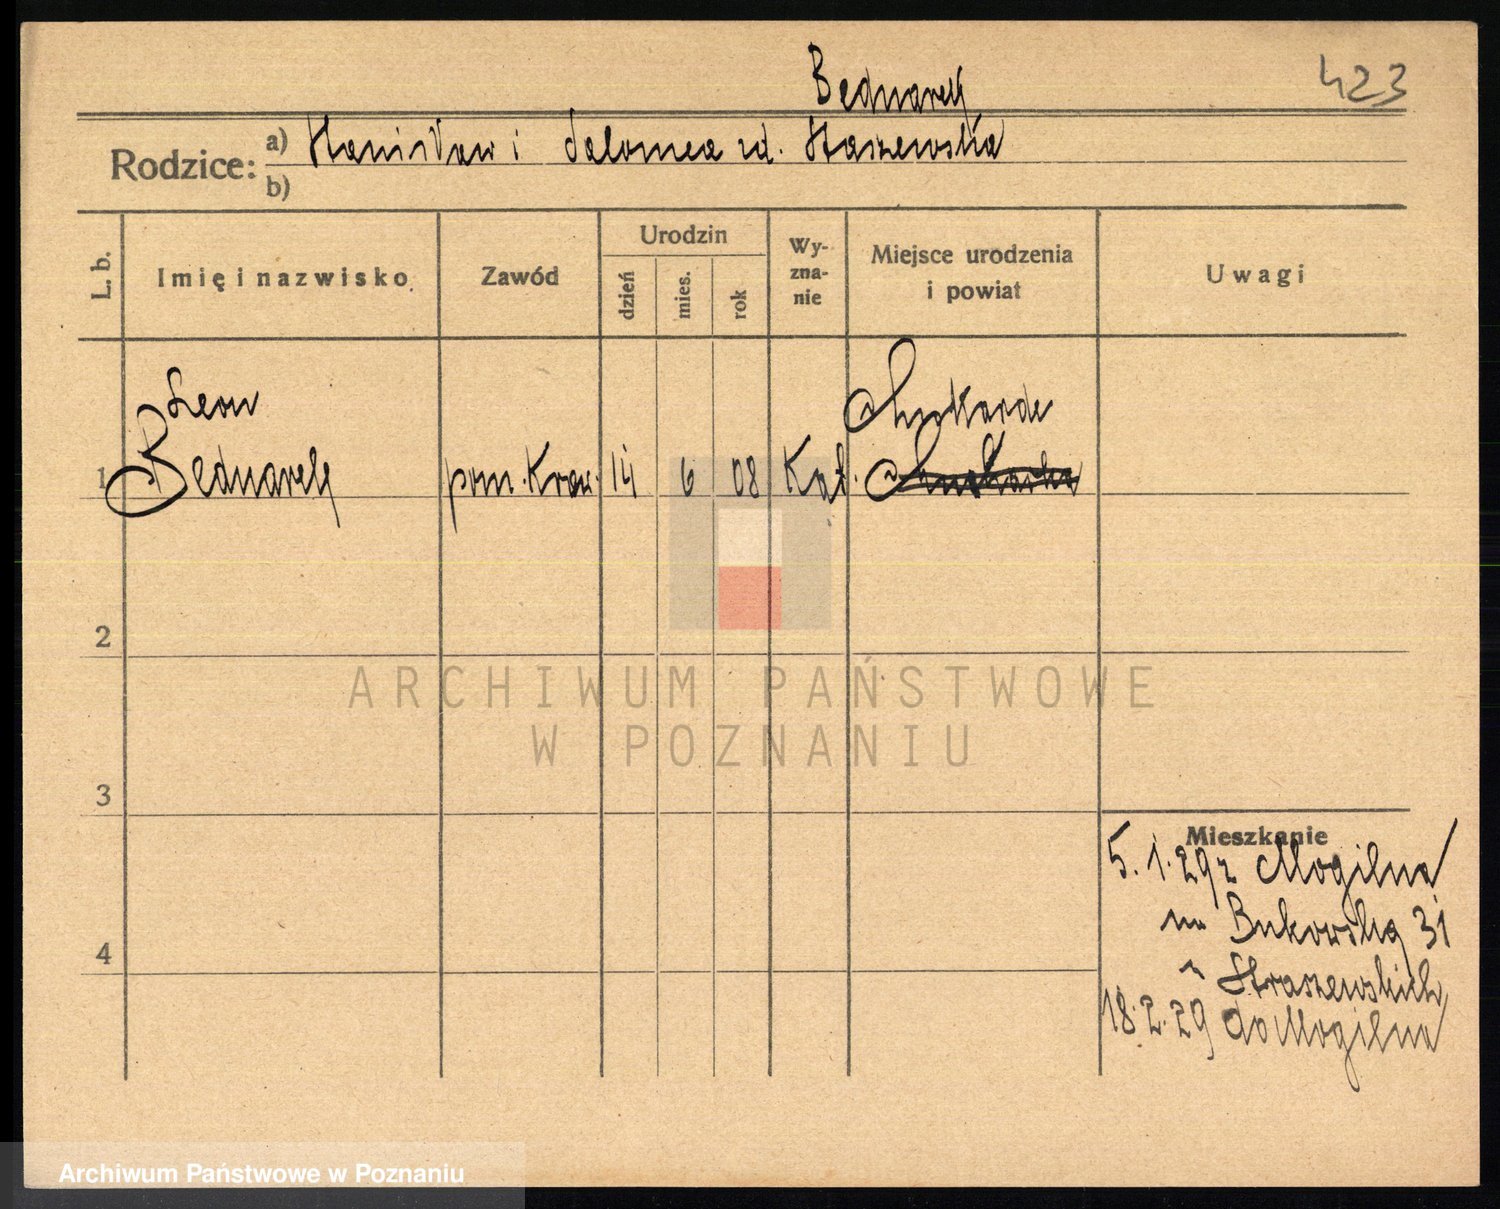 Bednarek
423
Rodzice: a) Stanisław i Salomea zd. Staszewska
b)
L. b. Imię i nazwisko Zawód Urodzin dzień mies. rok Wy-zna-nie Miejsce urodzenia i powiat Uwagi
Leon
1 Bednarek pom. Kraw. 14 6 08 Kat.
2
ARCHIWUM PAŃSTWOWE
W POZNANIU
3
Mieszkanie
5.1.29 z Mogilna
na Bukowską 31
4
u Straszewskich
18.2.29 do Mogilna
Archiwum Państwowe w Poznaniu